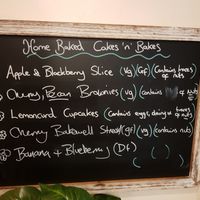 Home Baked Cakes 'n' Bakes
Apple & Blackberry Slice (Vg)(GF)(Contains traces of nuts)
Cherry, Bean Brownies (vg)(contains of nuts
Lemoncurd Cupcakes (contains eggs, dairy & traces of nuts
Cherry Bakewell Streat (gf)(vg)(contains nuts)
Banana + Blueberry (DF) ( )